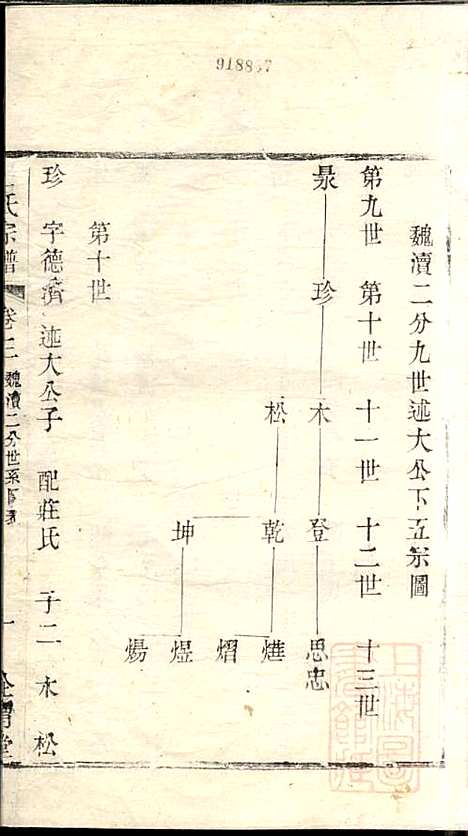 918857
魏瀆二分九世述大公下五宗圖
第九世 第十世 十一世 十二世 十三世
景 珍 木 登 思忠
松 乾 爗
熠
坤 煜
煬
第十世
珍 字德濟 述大公子 配莊氏 子二 木 松
氏宗譜 卷三 魏瀆二分世系 一